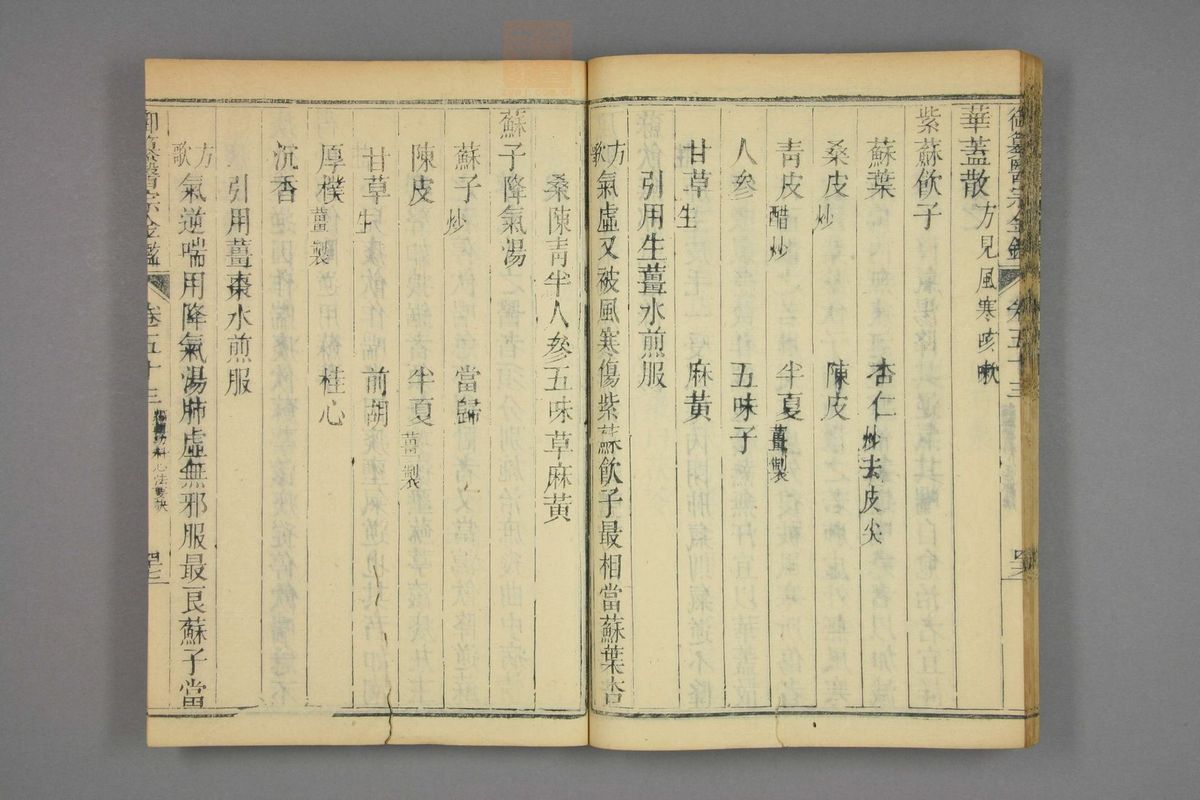 華蓋散方見風寒咳嗽
紫蘇飲子
蘇葉 杏仁炒去皮尖
桑皮炒 陳皮
青皮醋炒 半夏薑製
人參 五味子
甘草生 麻黃
引用生薑水煎服
方歌 氣虛又被風寒傷紫蘇飲子最相當蘇葉杏
桑陳青半人參五味草麻黃
蘇子降氣湯
蘇子炒 當歸
陳皮 半夏薑製
甘草生 前胡
厚樸薑製 桂心
沉香
引用薑棗水煎服
方歌 氣逆喘用降氣湯肺虛無邪服最良蘇子當
御纂醫宗金鑑 卷五十三 編輯幼科心法要訣